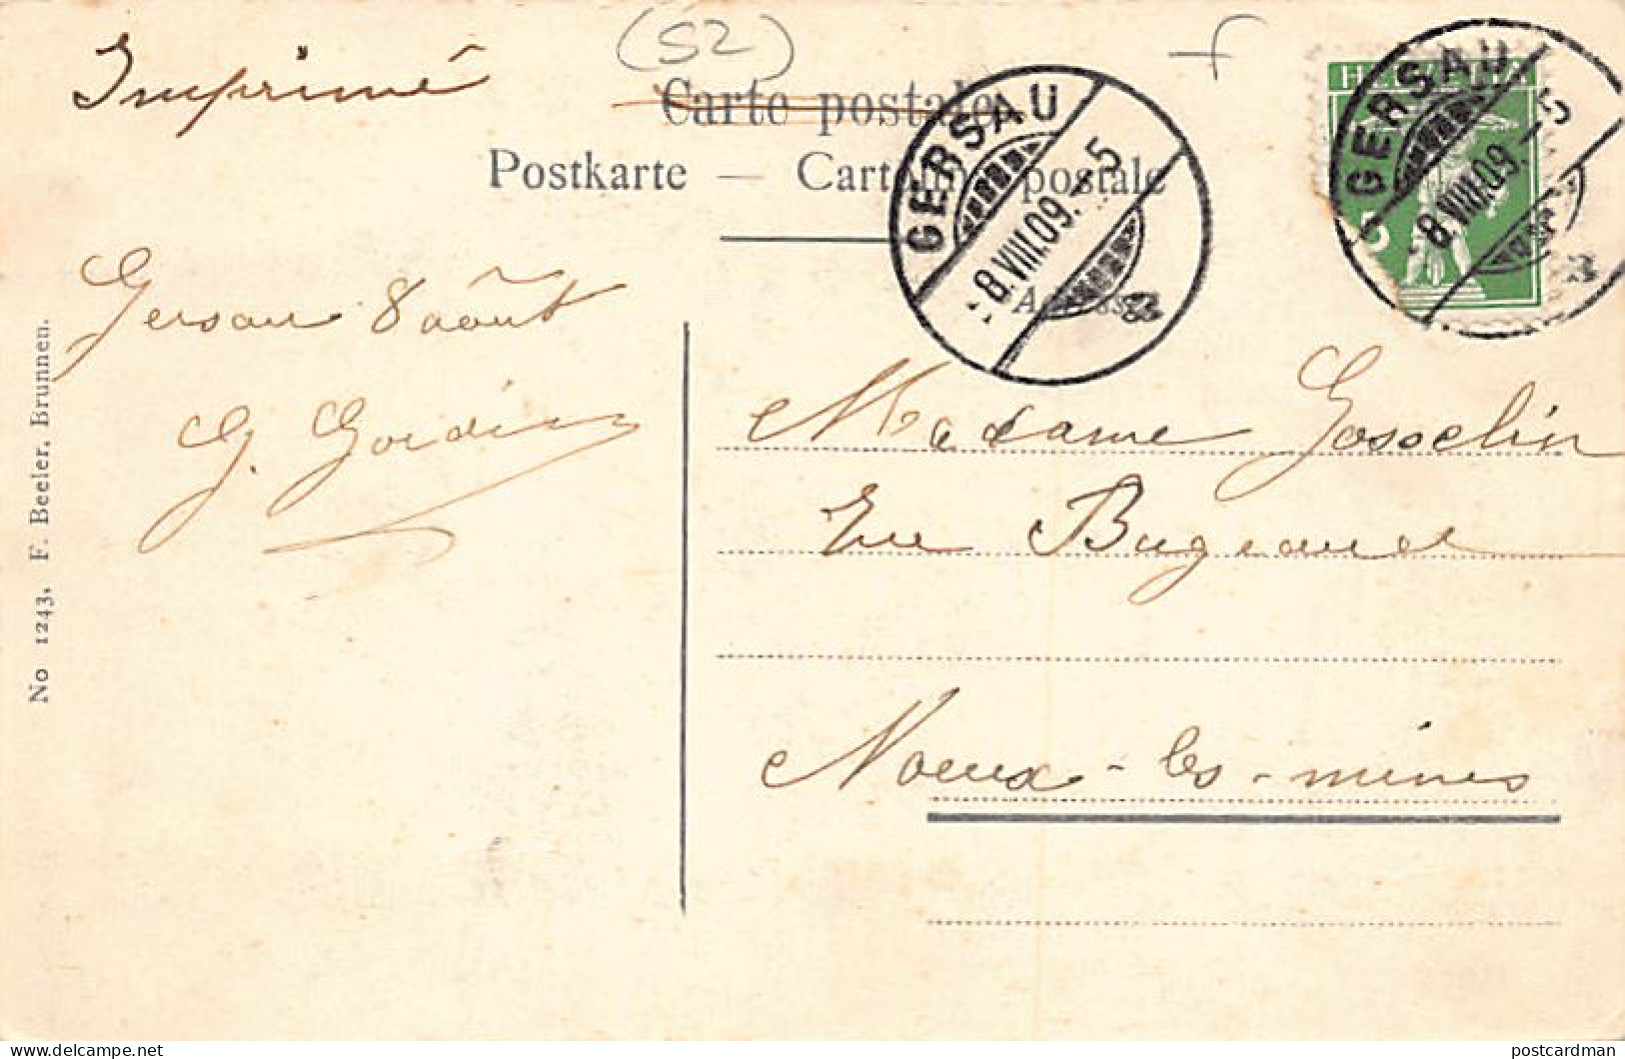 (SZ)
Imprimé
Carte postale
Postkarte — Cartolina postale
GERSAU
8.VIII.09.-5
HELVETIA
5
GERSAU
8.VIII.09.-5
a
Gersau 8 août
Madame Gosselin
Rue Bugeaud
Noeux-les-mines
No 1243, F. Beeler, Brunnen.
postcardman